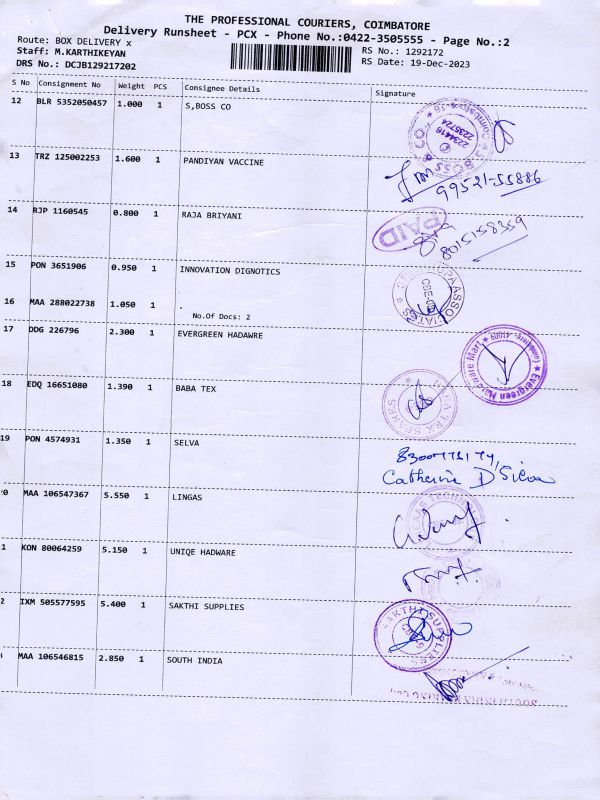 THE PROFESSIONAL COURIERS, COIMBATORE
Delivery Runsheet - PCX - Phone No.:0422-3505555 - Page No.:2
Route: BOX DELIVERY x
RS No.: 1292172
Staff: M.KARTHIKEYAN
RS Date: 19-Dec-2023
DRS No.: DCJB129217202
S No Consignment No Weight PCS Consignee Details Signature
12 BLR 5352050457 1.000 1 S,BOSS CO
2234416
2236724
13 TRZ 125002253 1.600 1 PANDIYAN VACCINE
99521-55886
14 RJP 1160545 0.800 1 RAJA BRIYANI
PAID
8015158359
15 PON 3651906 0.950 1 INNOVATION DIGNOTICS
16 MAA 288022738 1.050 1 .
No.Of Docs: 2
17 DDG 226796 2.300 1 EVERGREEN HADAWRE
Evergreen Hardware Mart
18 EDQ 16651080 1.390 1 BABA TEX
19 PON 4574931 1.350 1 SELVA
8300771174
Catherine D Silva
0 MAA 106547367 5.550 1 LINGAS
1 KON 80064259 5.150 1 UNIQE HADWARE
2 IXM 505577595 5.400 1 SAKTHI SUPPLIES
SAKTHI SUPPLIERS
MAA 106546815 2.850 1 SOUTH INDIA